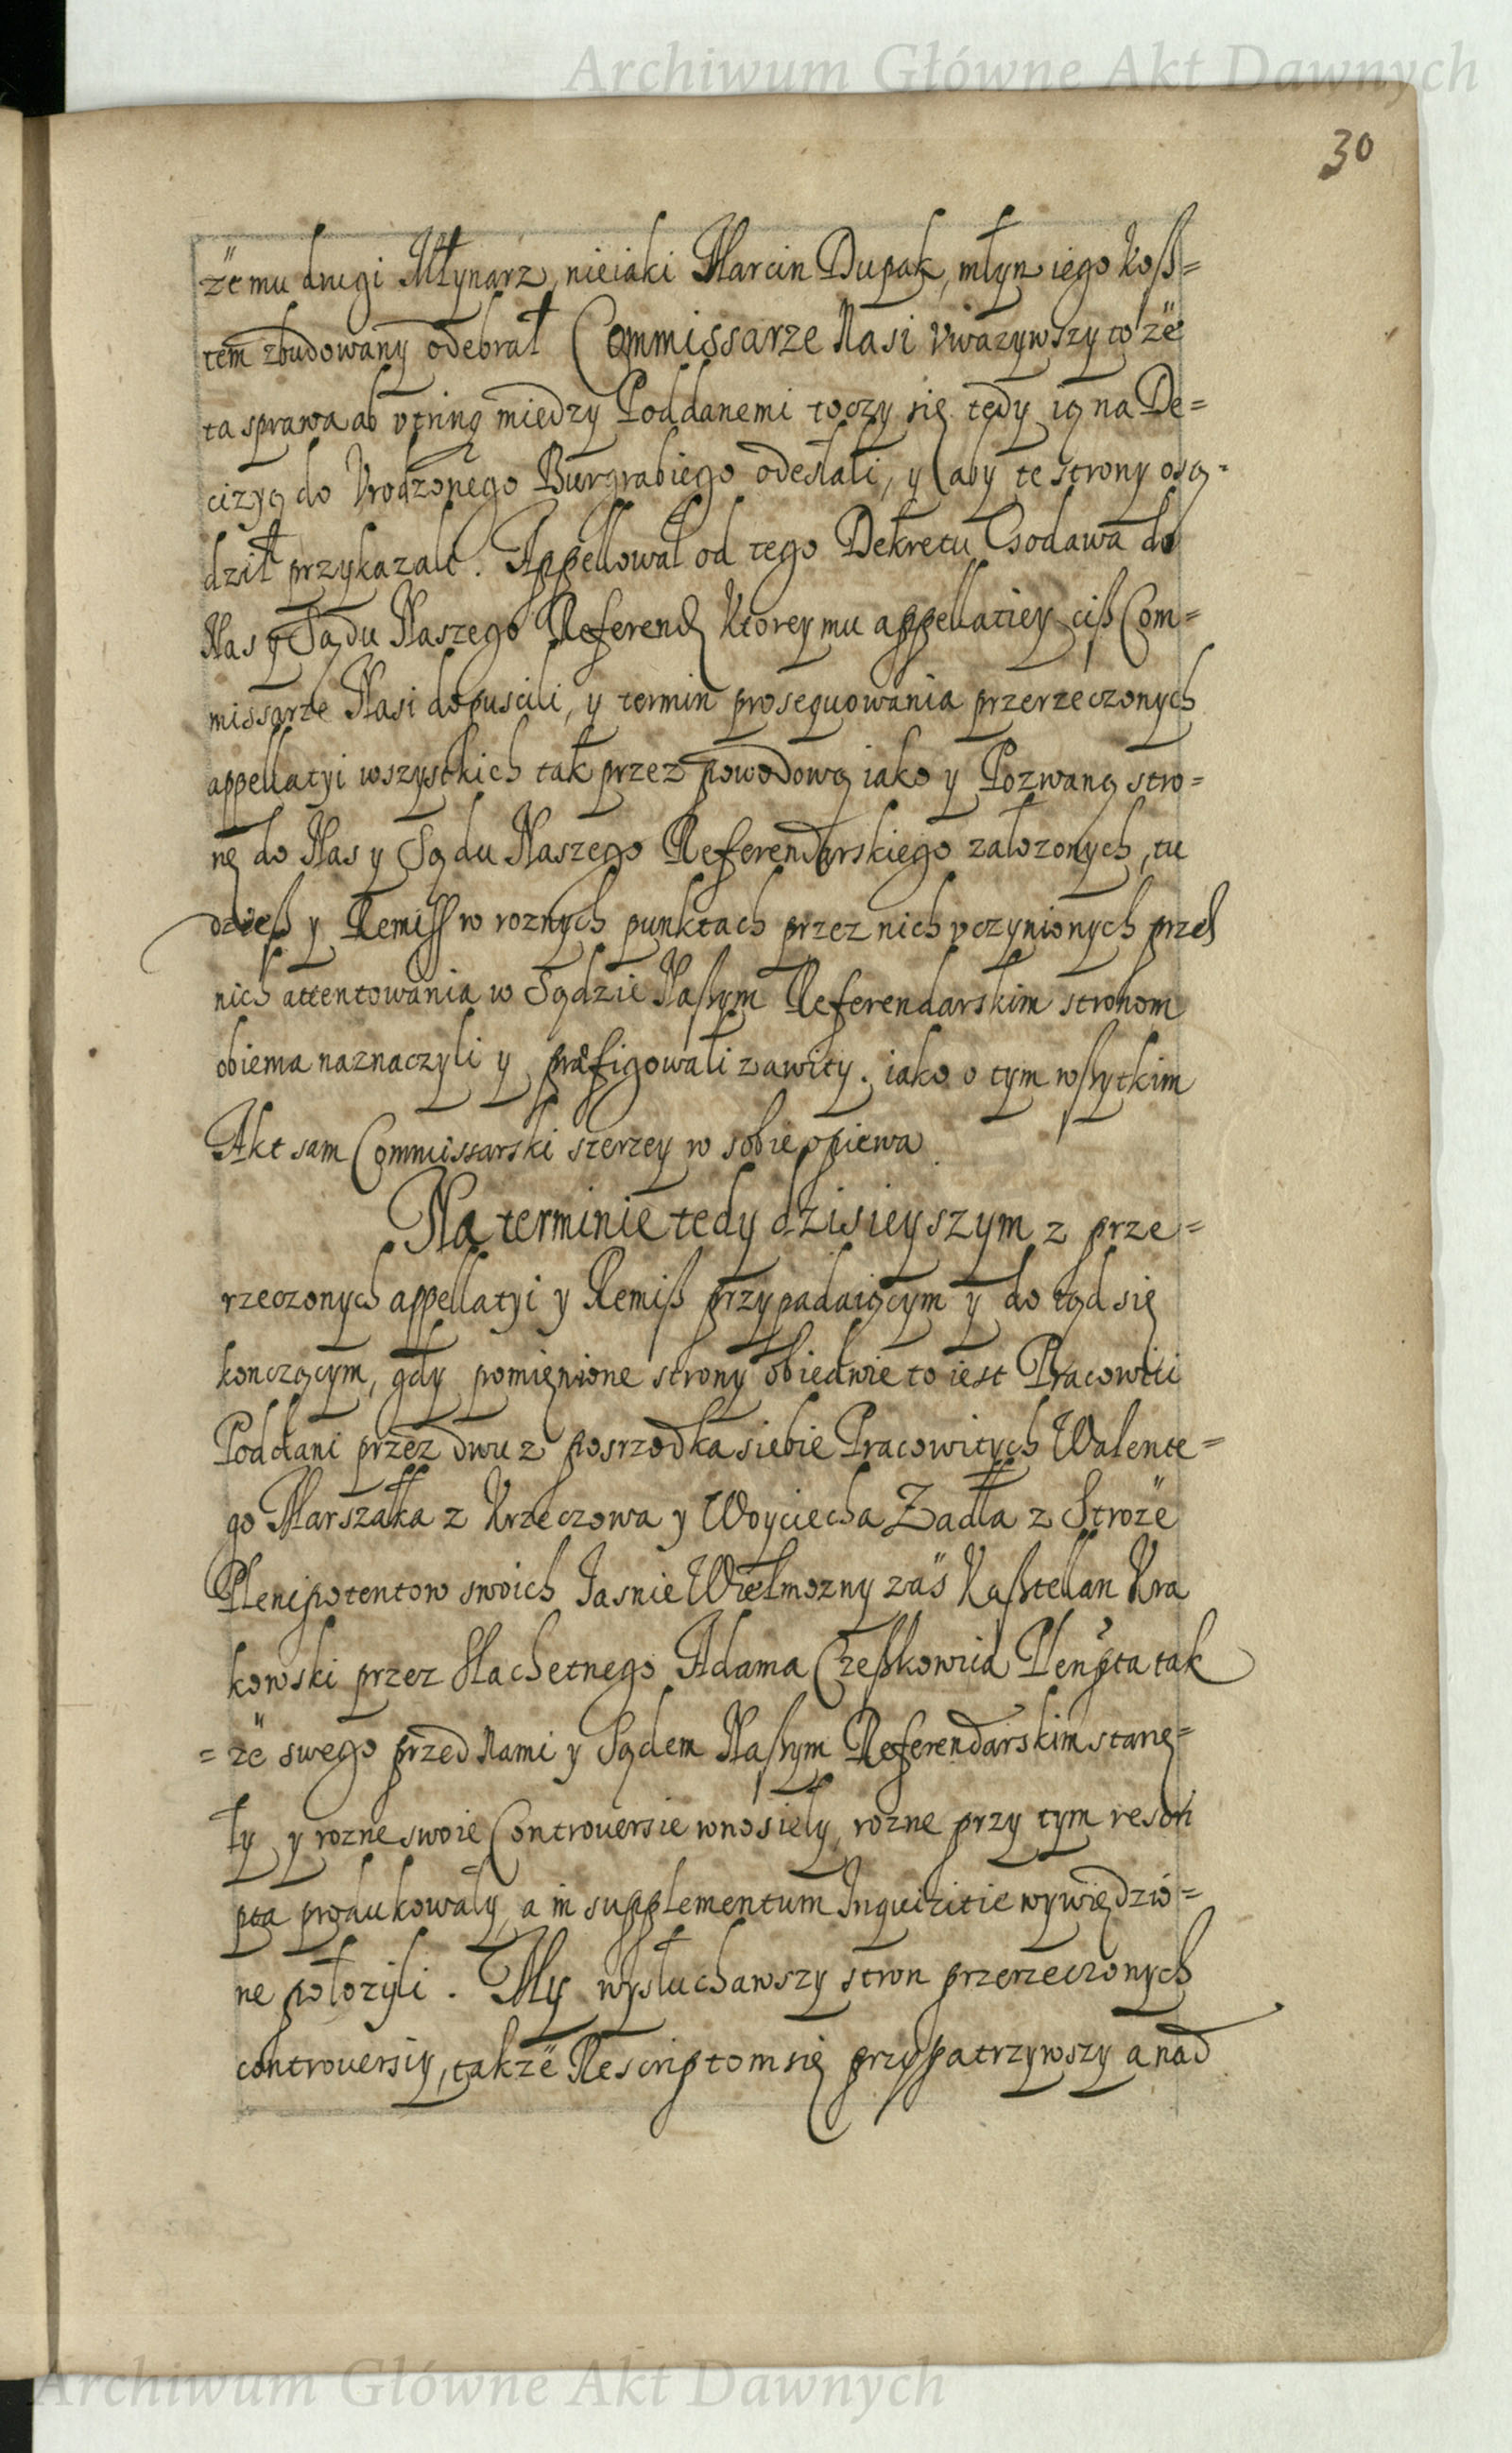 Archiwum Główne Akt Dawnych
30
że mu drugi Młynarz, nieiaki Marcin Dupak, młyn iego koß=
tem zbudowany odebrał Commissarze Nasi vważywszy to że
ta sprawa ab vtrinq miedzy Poddanemi toczy się tedy ią na De=
cizyą do Vrodzonego Burgrabiego odesłali, y aby te strony osą=
dził przykazali. Appellował od tego Dekretu Csodawa do
Nas y Sądu Naszego Referend Ktorey mu appellatiey ciß Com=
missarze Nasi dopuscili, y termin prosequowania przerzeczonych
appellatyi wszystkich tak przez powodową iako y Pozwaną stro=
nę do Nas y Sądu Naszego Referendarskiego załozonych, tu
dzieß y Remiss w roznych punktach przez nich vczynionych przed
nich attentowania w Sądzie Naßym Referendarskim stronom
obiema naznaczyli y præfigowali zawity. iako o tym wßytkim
Akt sam Commissarski szerzey w sobie opiewa.
Na terminie tedy dzisieyszym z prze=
rzeczonych appellatyi y Remiß przypadaiącym y do tąd się
konczącym, gdy pomięnione strony obiedwie to iest Pracowici
Poddani przez dwu z posrzodka siebie Pracowitych Walente=
go Marszałka z Krzeczowa y Woyciecha Zadła z Stroże
Plenipotentow swoich Jasnie Wielmozny zas Kaßtellan Kra
kowski przez Slachetnego Adama Czeßkowica Plenpta tak
=że swego przed Nami y Sądem Naßym Referendarskim stanę=
ły y rozne swoie Controuersie wnosieły, rozne przy tym rescri
pta produkowały, a in supplementum Inquizitie wywiędzio=
ne położyli. My wysłuchawszy stron przerzeczonych
controuersiy, także Rescriptom się przypatrzywszy a nad
Archiwum Główne Akt Dawnych